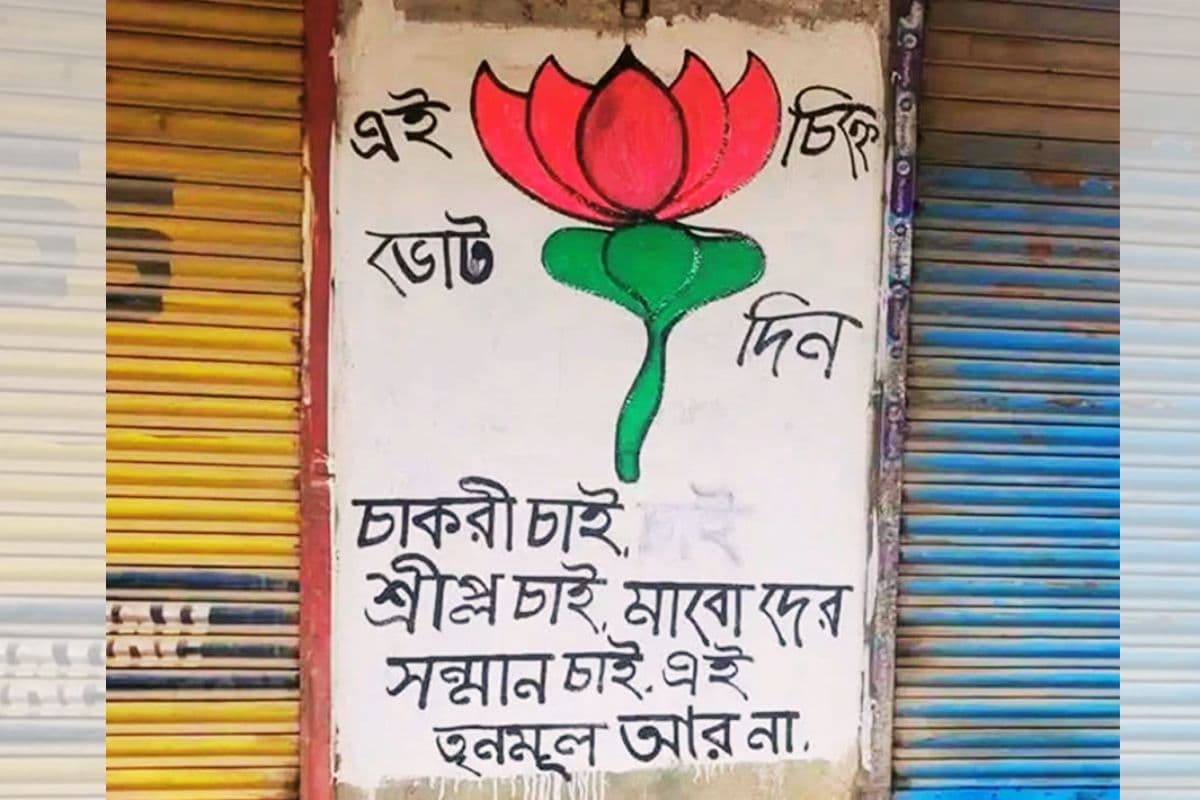 এই চিহ্নে
ভোট
দিন
চাকরী চাই.
শ্রীপ্ল চাই. মাবো দের
সন্মান চাই. এই
তৃনমূল আর না.